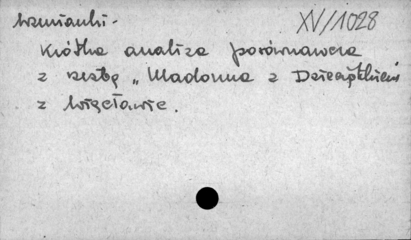 wzmianki.
XV/1028
Krótka analiza porównawcza
z rzeźbą "Madonna z Dzieciątkiem
z Więcławic.